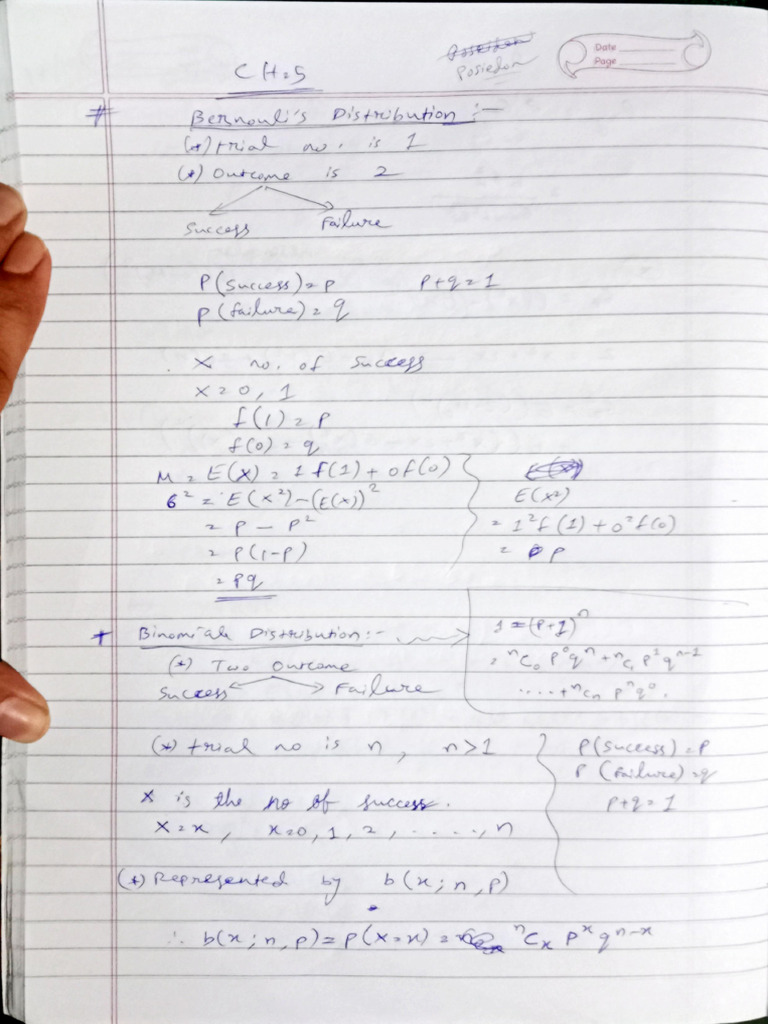 Poseidon
Posiedon
Date
Page
CH-5
# Bernouli's Distribution :-
(*) trial no. is 1
(*) Outcome is 2
Success Failure
P(Success) = p p+q=1
p(failure) = q
X no. of success
x = 0, 1
f(1) = p
f(0) = q
M = E(X) = 1 f(1) + 0 f(0)
6² = E(X²) - (E(X))²
= p - p²
= p(1-p)
= pq
E(X²)
= 1² f(1) + 0² f(0)
= p
+ Binomial Distribution :-
1 = (p+1)ⁿ
= ⁿC₀ p⁰qⁿ + ⁿC₁ p¹ qⁿ⁻¹
..... + ⁿCn pⁿq⁰.
(*) Two Outcome
Success Failure
(*) trial no is n, n>1
X is the no of success.
X = x, x=0, 1, 2, ....., n
P(Success) = p
P(Failure) = q
p+q=1
(*) Represented by b(x; n, p)
∴ b(x; n, p) = p(X=x) = ⁿCₓ pˣ qⁿ⁻ˣ